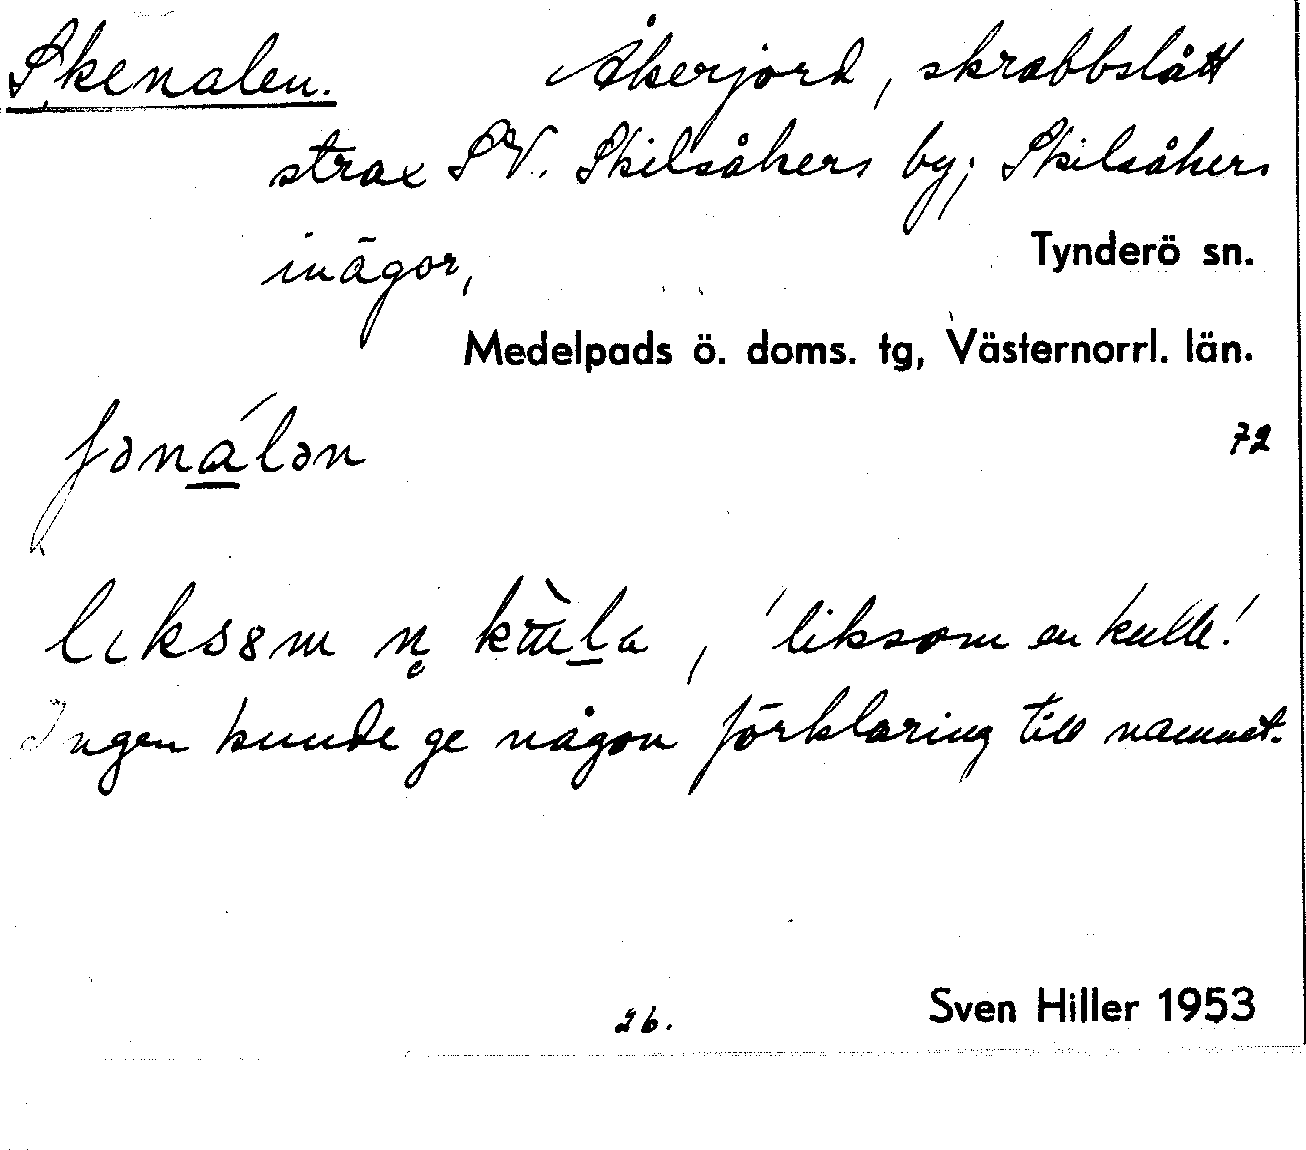 Skenalen. Åkerjord, skrabbslått
strax SV. Skilsåkers by; Skilsåkers
inägor, Tynderö sn.
Medelpads ö. doms. tg, Västernorrl. län.
ʃənálən 72
lıksȣm n̥ kùla, 'liksom en kulle'.
Ingen kunde ge någon förklaring till namnet.
26. Sven Hiller 1953